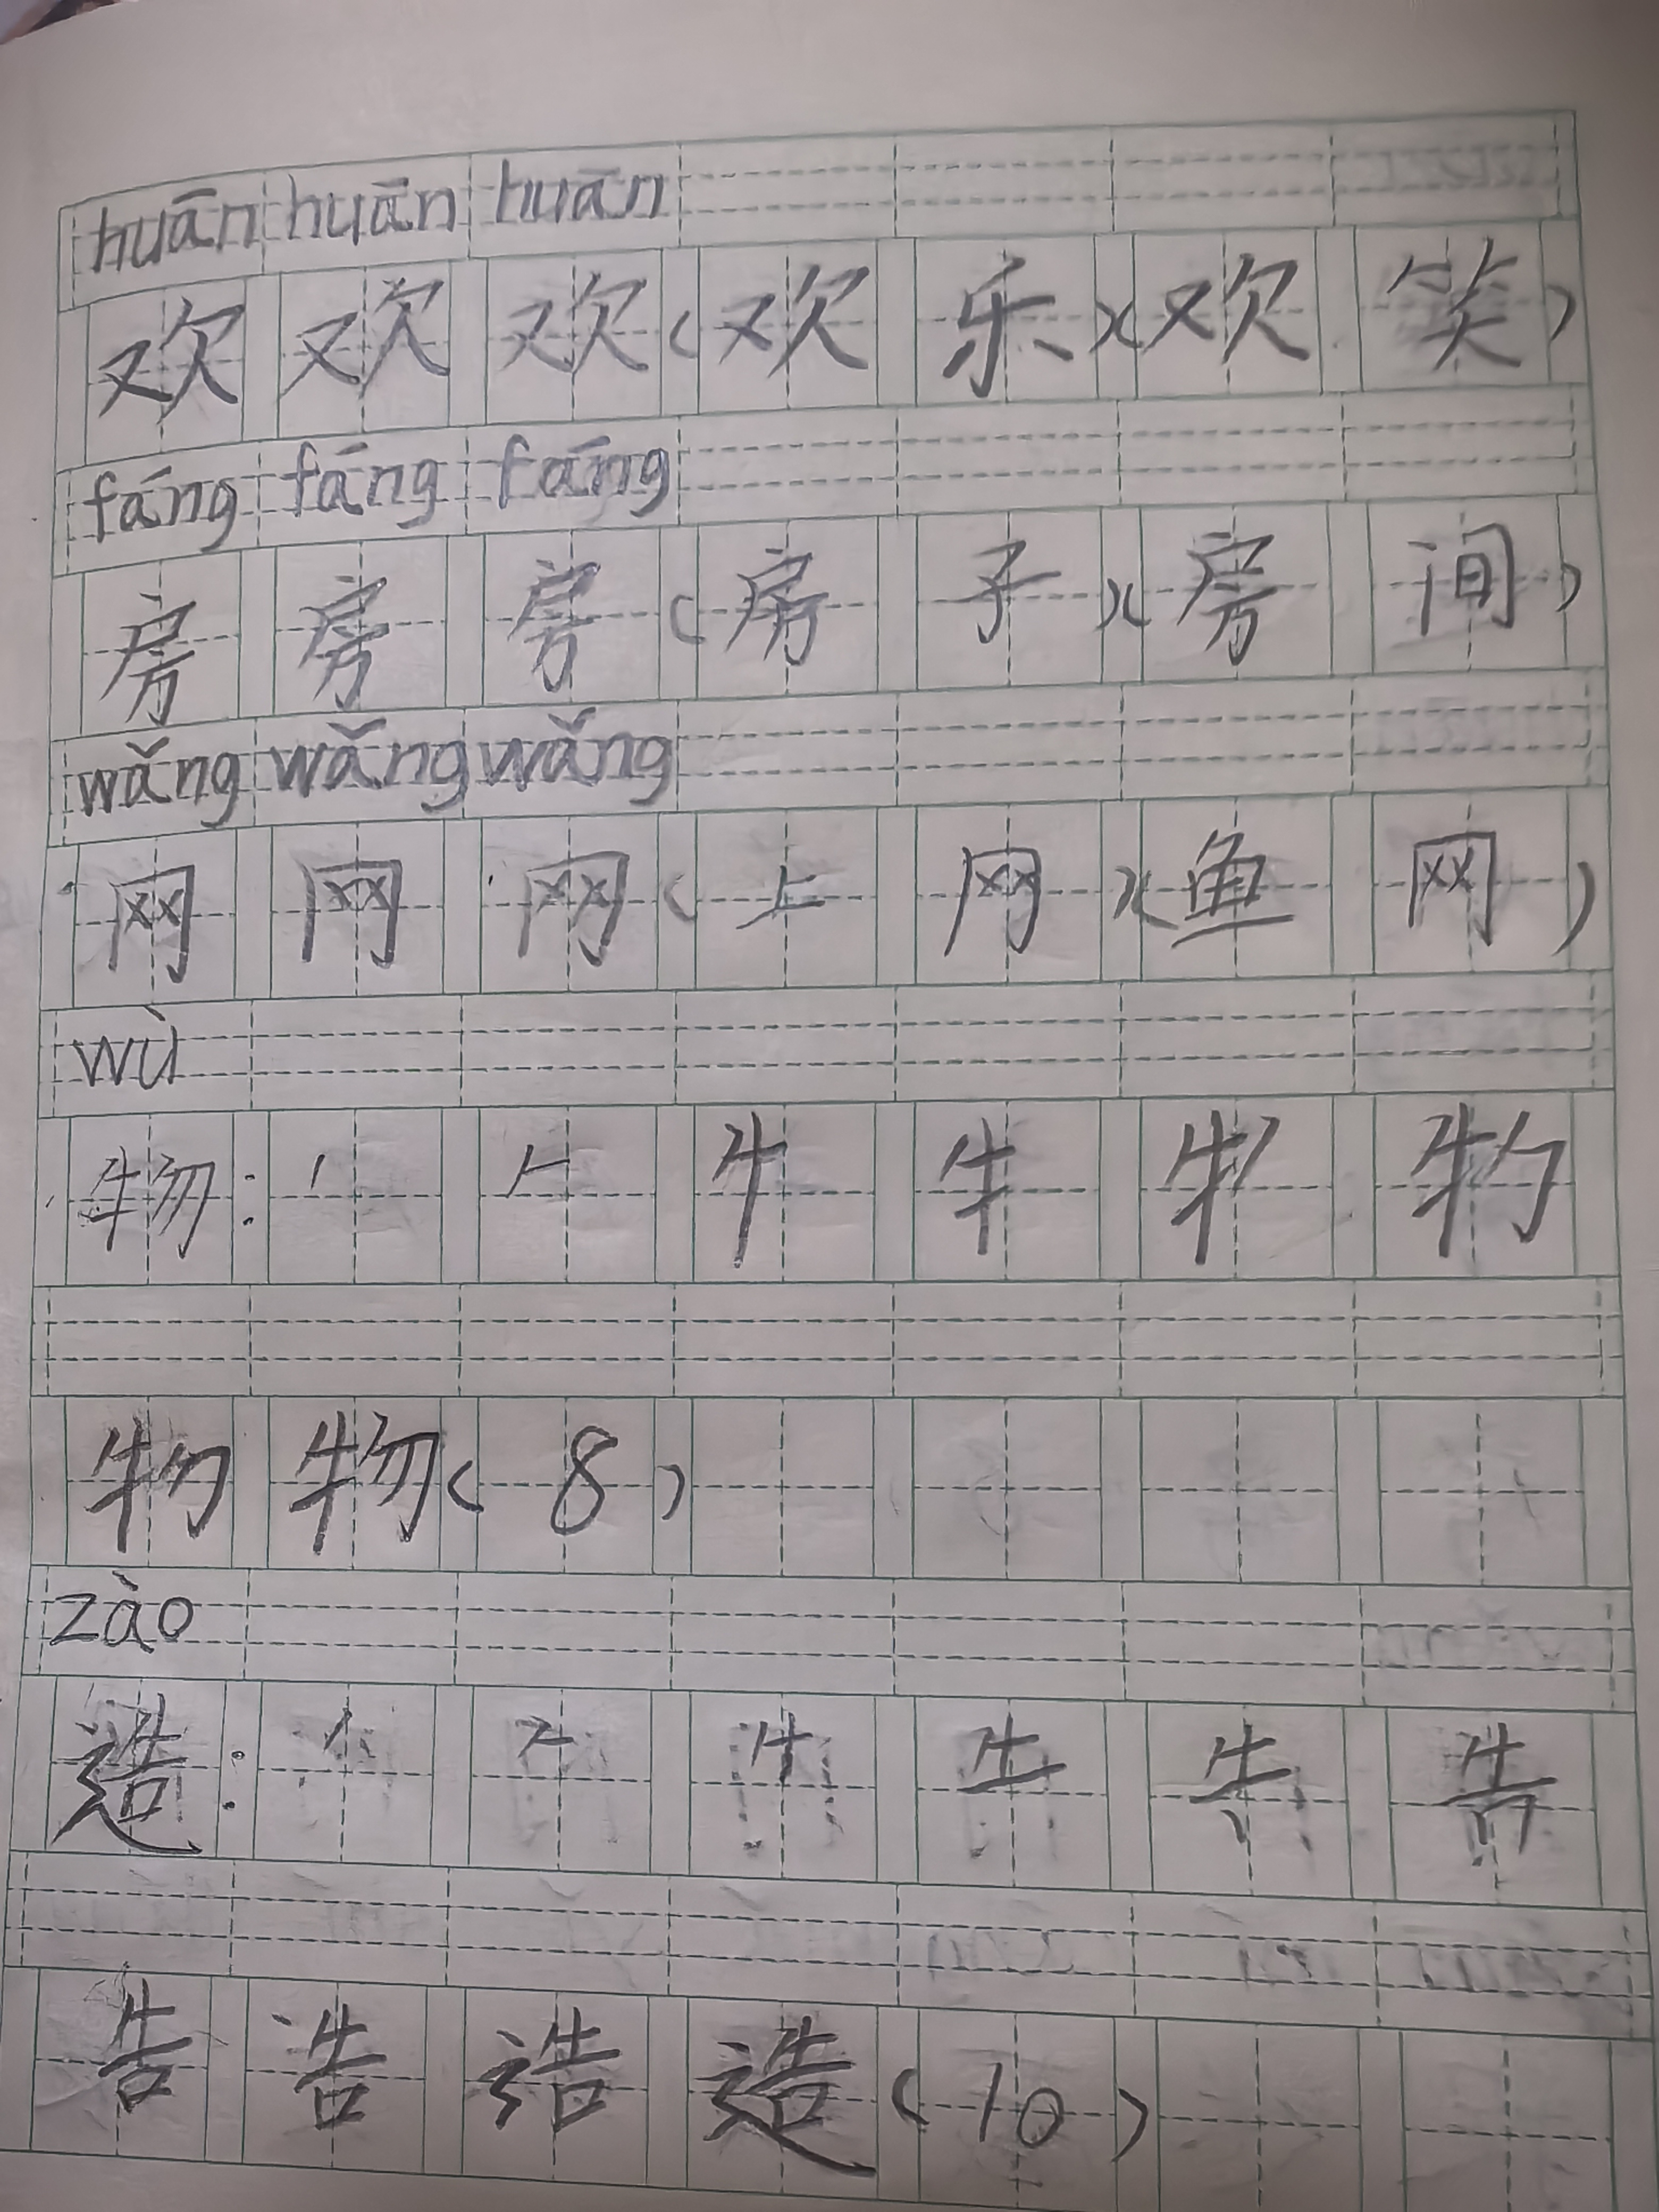 huān huān huān
欢 欢 欢 ( 欢 乐 ) ( 欢 笑 )
fáng fáng fáng
房 房 房 ( 房 子 ) ( 房 间 )
wǎng wǎng wǎng
网 网 网 ( 上 网 ) ( 鱼 网 )
wù
物 : 丿 𠂉
物 物 ( 8 )
zào
造 : 丿 𠂉
告 造 ( 10 )